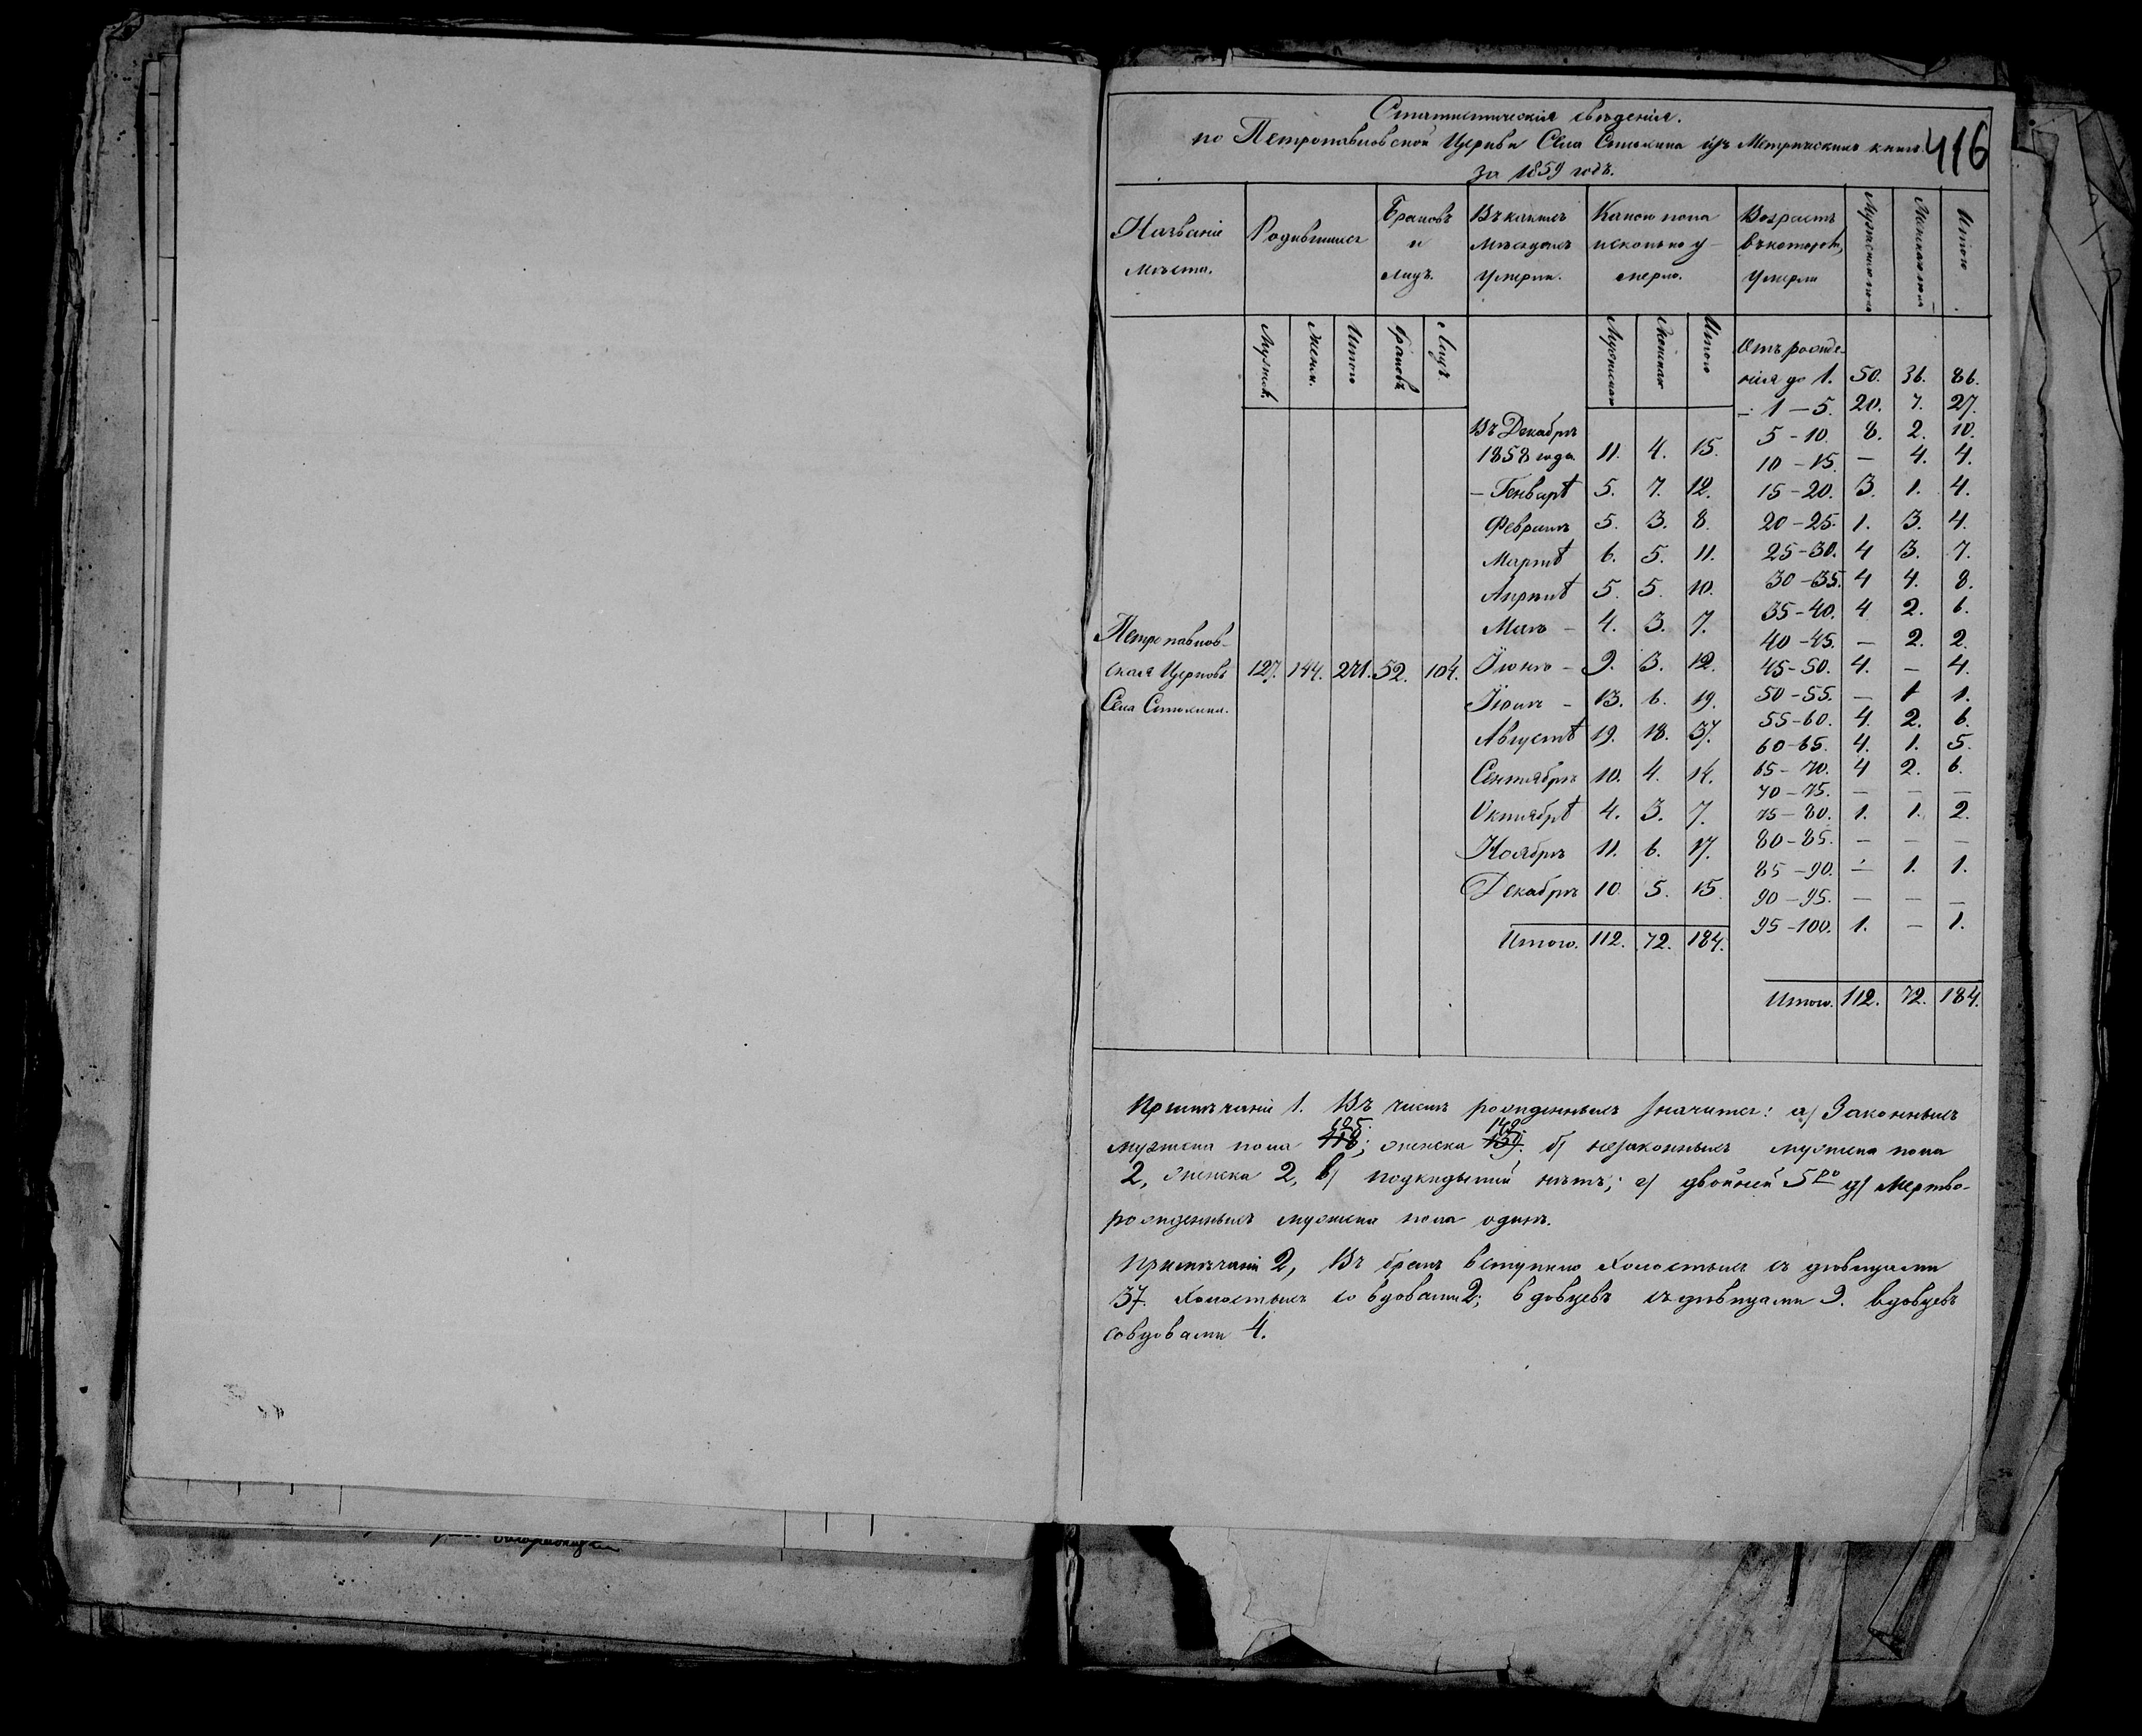 Статистическія свѣденія.
по Петропавловской Церкви Села Стюхина изъ Метрическихъ книгъ
416
за 1859 годъ.
Названіе мѣста.
Родившихся
Браковъ и лицъ.
Въ какихъ мѣсяцахъ умерли.
Какого пола и сколько умерло.
Возрастъ въ которомъ умерли
Мужескаго пола
Женскаго пола
Итого
Мужеск.
Женск.
Итого
Браковъ
Лицъ.
Мужескаго
Женскаго
Итого
Петропавлов-
ская Церковь 127. 144. 271. 52. 104.
Села Стюхина.
Въ Декабрѣ
1858 года 11. 4. 15.
– Генварѣ 5. 7. 12.
Февралѣ 5. 3. 8.
Мартѣ 6. 5. 11.
Апрѣлѣ 5. 5. 10.
Маѣ – 4. 3. 7.
Іюнѣ – 9. 3. 12.
Іюлѣ – 13. 6. 19.
Августѣ 19. 18. 37.
Сентябрѣ 10. 4. 14.
Октябрѣ 4. 3. 7.
Ноябрѣ 11. 6. 17.
Декабрѣ 10. 5. 15
Итого. 112. 72. 184.
Отъ рожде-
нія до 1. 50. 36. 86.
– 1 – 5. 20. 7. 27.
5 – 10. 8. 2. 10.
10 – 15. – 4. 4.
15 – 20. 3. 1. 4.
20 – 25. 1. 3. 4.
25 – 30. 4 3. 7.
30 – 35. 4 4. 8.
35 – 40. 4 2. 6.
40 – 45. – 2. 2.
45 – 50. 4. – 4.
50 – 55. – 1 1.
55 – 60. 4. 2. 6.
60 – 65. 4. 1. 5.
65 – 70. 4 2. 6.
70 – 75. – – –
75 – 80. 1. 1. 2.
80 – 85. – – –
85 – 90. – 1. 1.
90 – 95. – – –
95 – 100. 1. – 1.
Итого. 112. 72. 184.
Примѣчаніе 1. Въ числѣ рожденныхъ значится: а) Законныхъ
125. 142.
мужеска пола 118; женска 139. б) незаконныхъ мужеска пола
2, женска 2, в) подкидышей нѣтъ; г) двойней 5ро д) Мертво-
рожденныхъ мужеска пола одинъ.
Примѣчаніе 2, Въ бракъ вступило холостыхъ съ дѣвицами
37. Холостыхъ со вдовами 2; вдовцевъ съ дѣвицами 9. вдовцевъ
со вдовами 4.